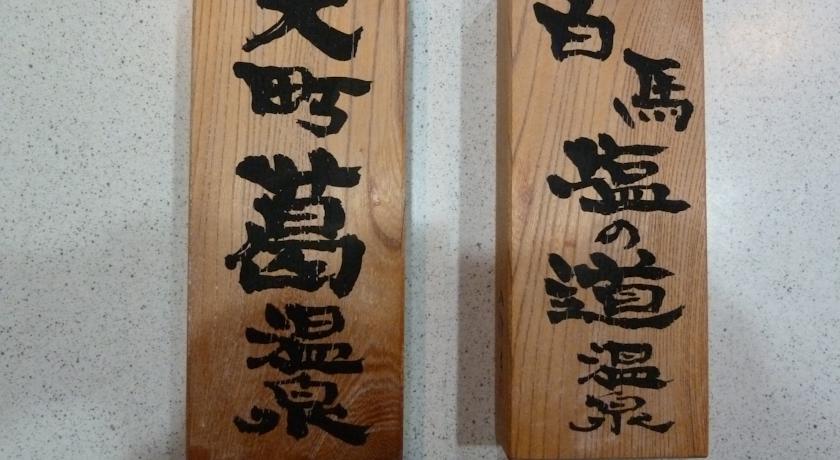 白馬塩の道温泉
大町葛温泉